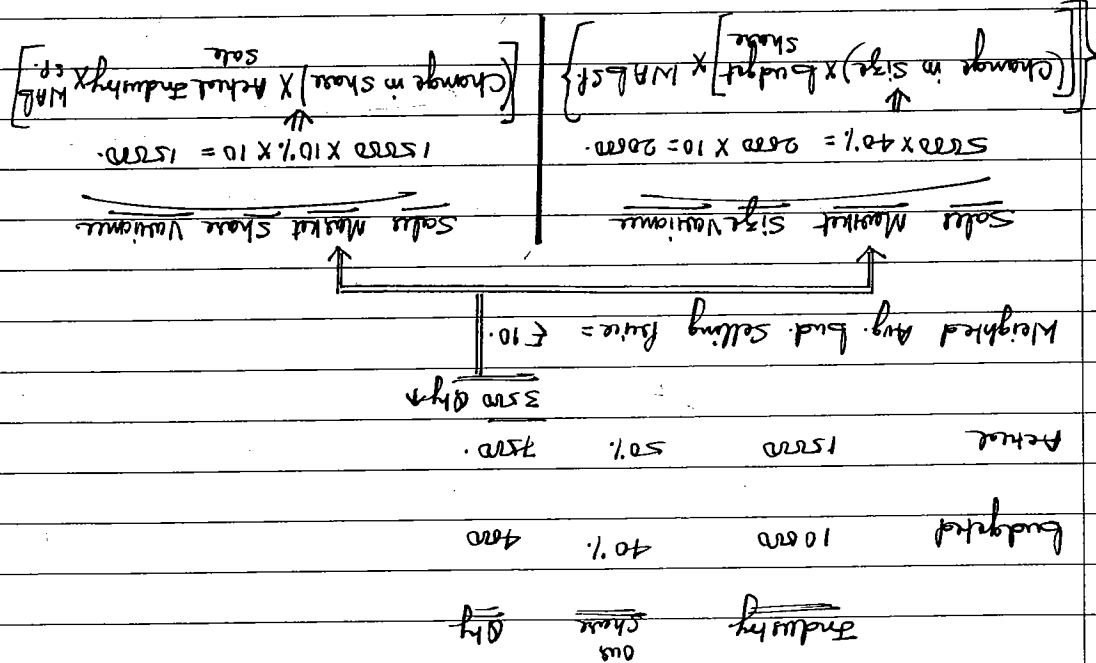 Industry our share Qty
budgeted 10000 40% 4000
Actual 15000 50% 7500.
3500 Qty↑
Weighted Avg. bud. Selling Price = ₹10.
Sales Market Size Variance
5000 X 40% = 2000 X 10 = 20000.
{[(Change in Size) X budget share] X WAbSP}
Sales Market Share Variance
15000 X 10% X 10 = 15000.
[(Change in Share) X Actual Industry Sale X WAB SP.]